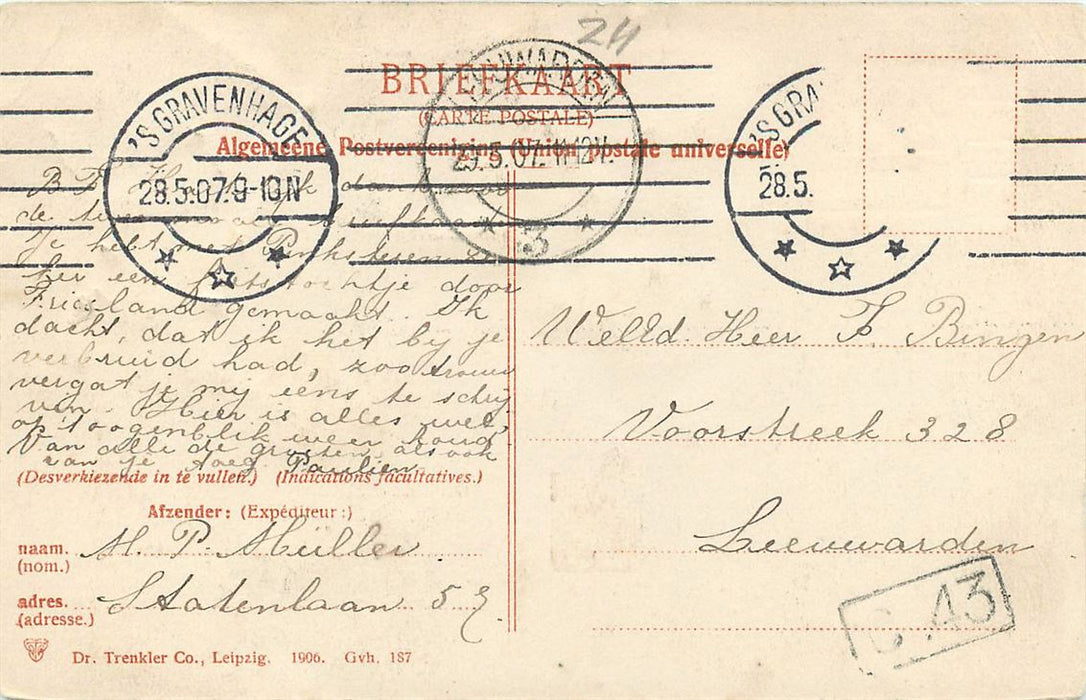 24
BRIEFKAART
(CARTE POSTALE)
Algemeene Postvereeniging (Union postale universelle)
'S GRAVENHAGE
28.5.07.9-10N
LEEUWARDEN
29.5.07. 11-12V.
3
'S GRA
28.5.
B F Hartelijk dank voor
de briefkaart
Je hebt met Pinksteren
hier een fietstochtje door
Friesland gemaakt. Ik
dacht, dat ik het bij je
verbruid had, zoo trouw
vergat je mij eens te schrij
ven. Hier is alles wel,
op 't oogenblik weer koud
Van alle de groeten, als ook
van je toeg. Paulien
WelEd. Heer F. Bingen
Voorstreek 328
Leeuwarden
(Desverkiezende in te vullen.) (Indications facultatives.)
Afzender: (Expéditeur:)
naam. M. P. Müller
(nom.)
adres. Statenlaan 5
(adresse.)
Dr. Trenkler Co., Leipzig. 1906. Gvh. 187
C. 43